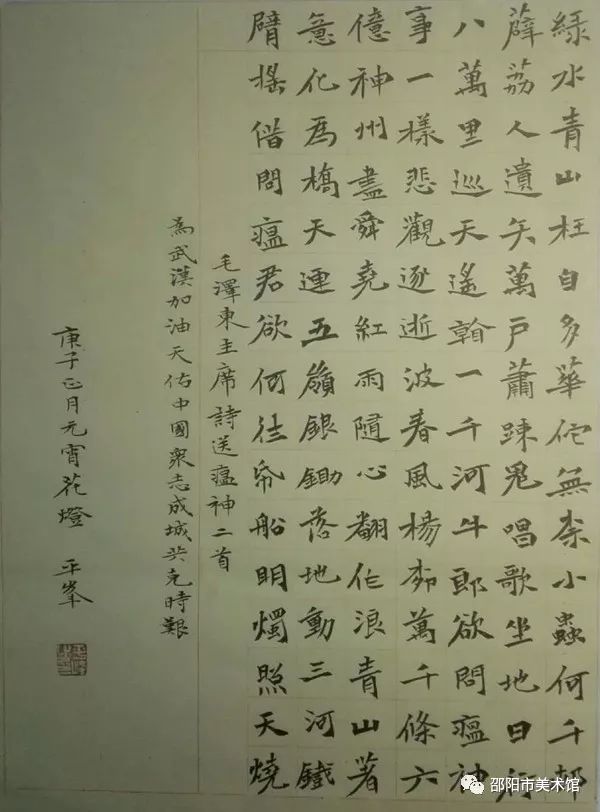 綠水青山枉自多華佗無柰小蟲何千邨
薜荔人遺矢萬戶蕭踈鬼唱歌坐地日行
八萬里巡天遙翰一千河牛郎欲問瘟神
事一樣悲觀逐逝波春風楊柳萬千條六
億神州盡舜堯紅雨隨心翻作浪青山著
意化為橋天連五嶺銀鋤落地動三河鐵
臂搖借問瘟君欲何往帋船明燭照天燒
毛澤東主席詩送瘟神二首
為武漢加油天佑中國衆志成城共克時艱
庚子正月元宵花燈 平峯
邵阳市美术馆